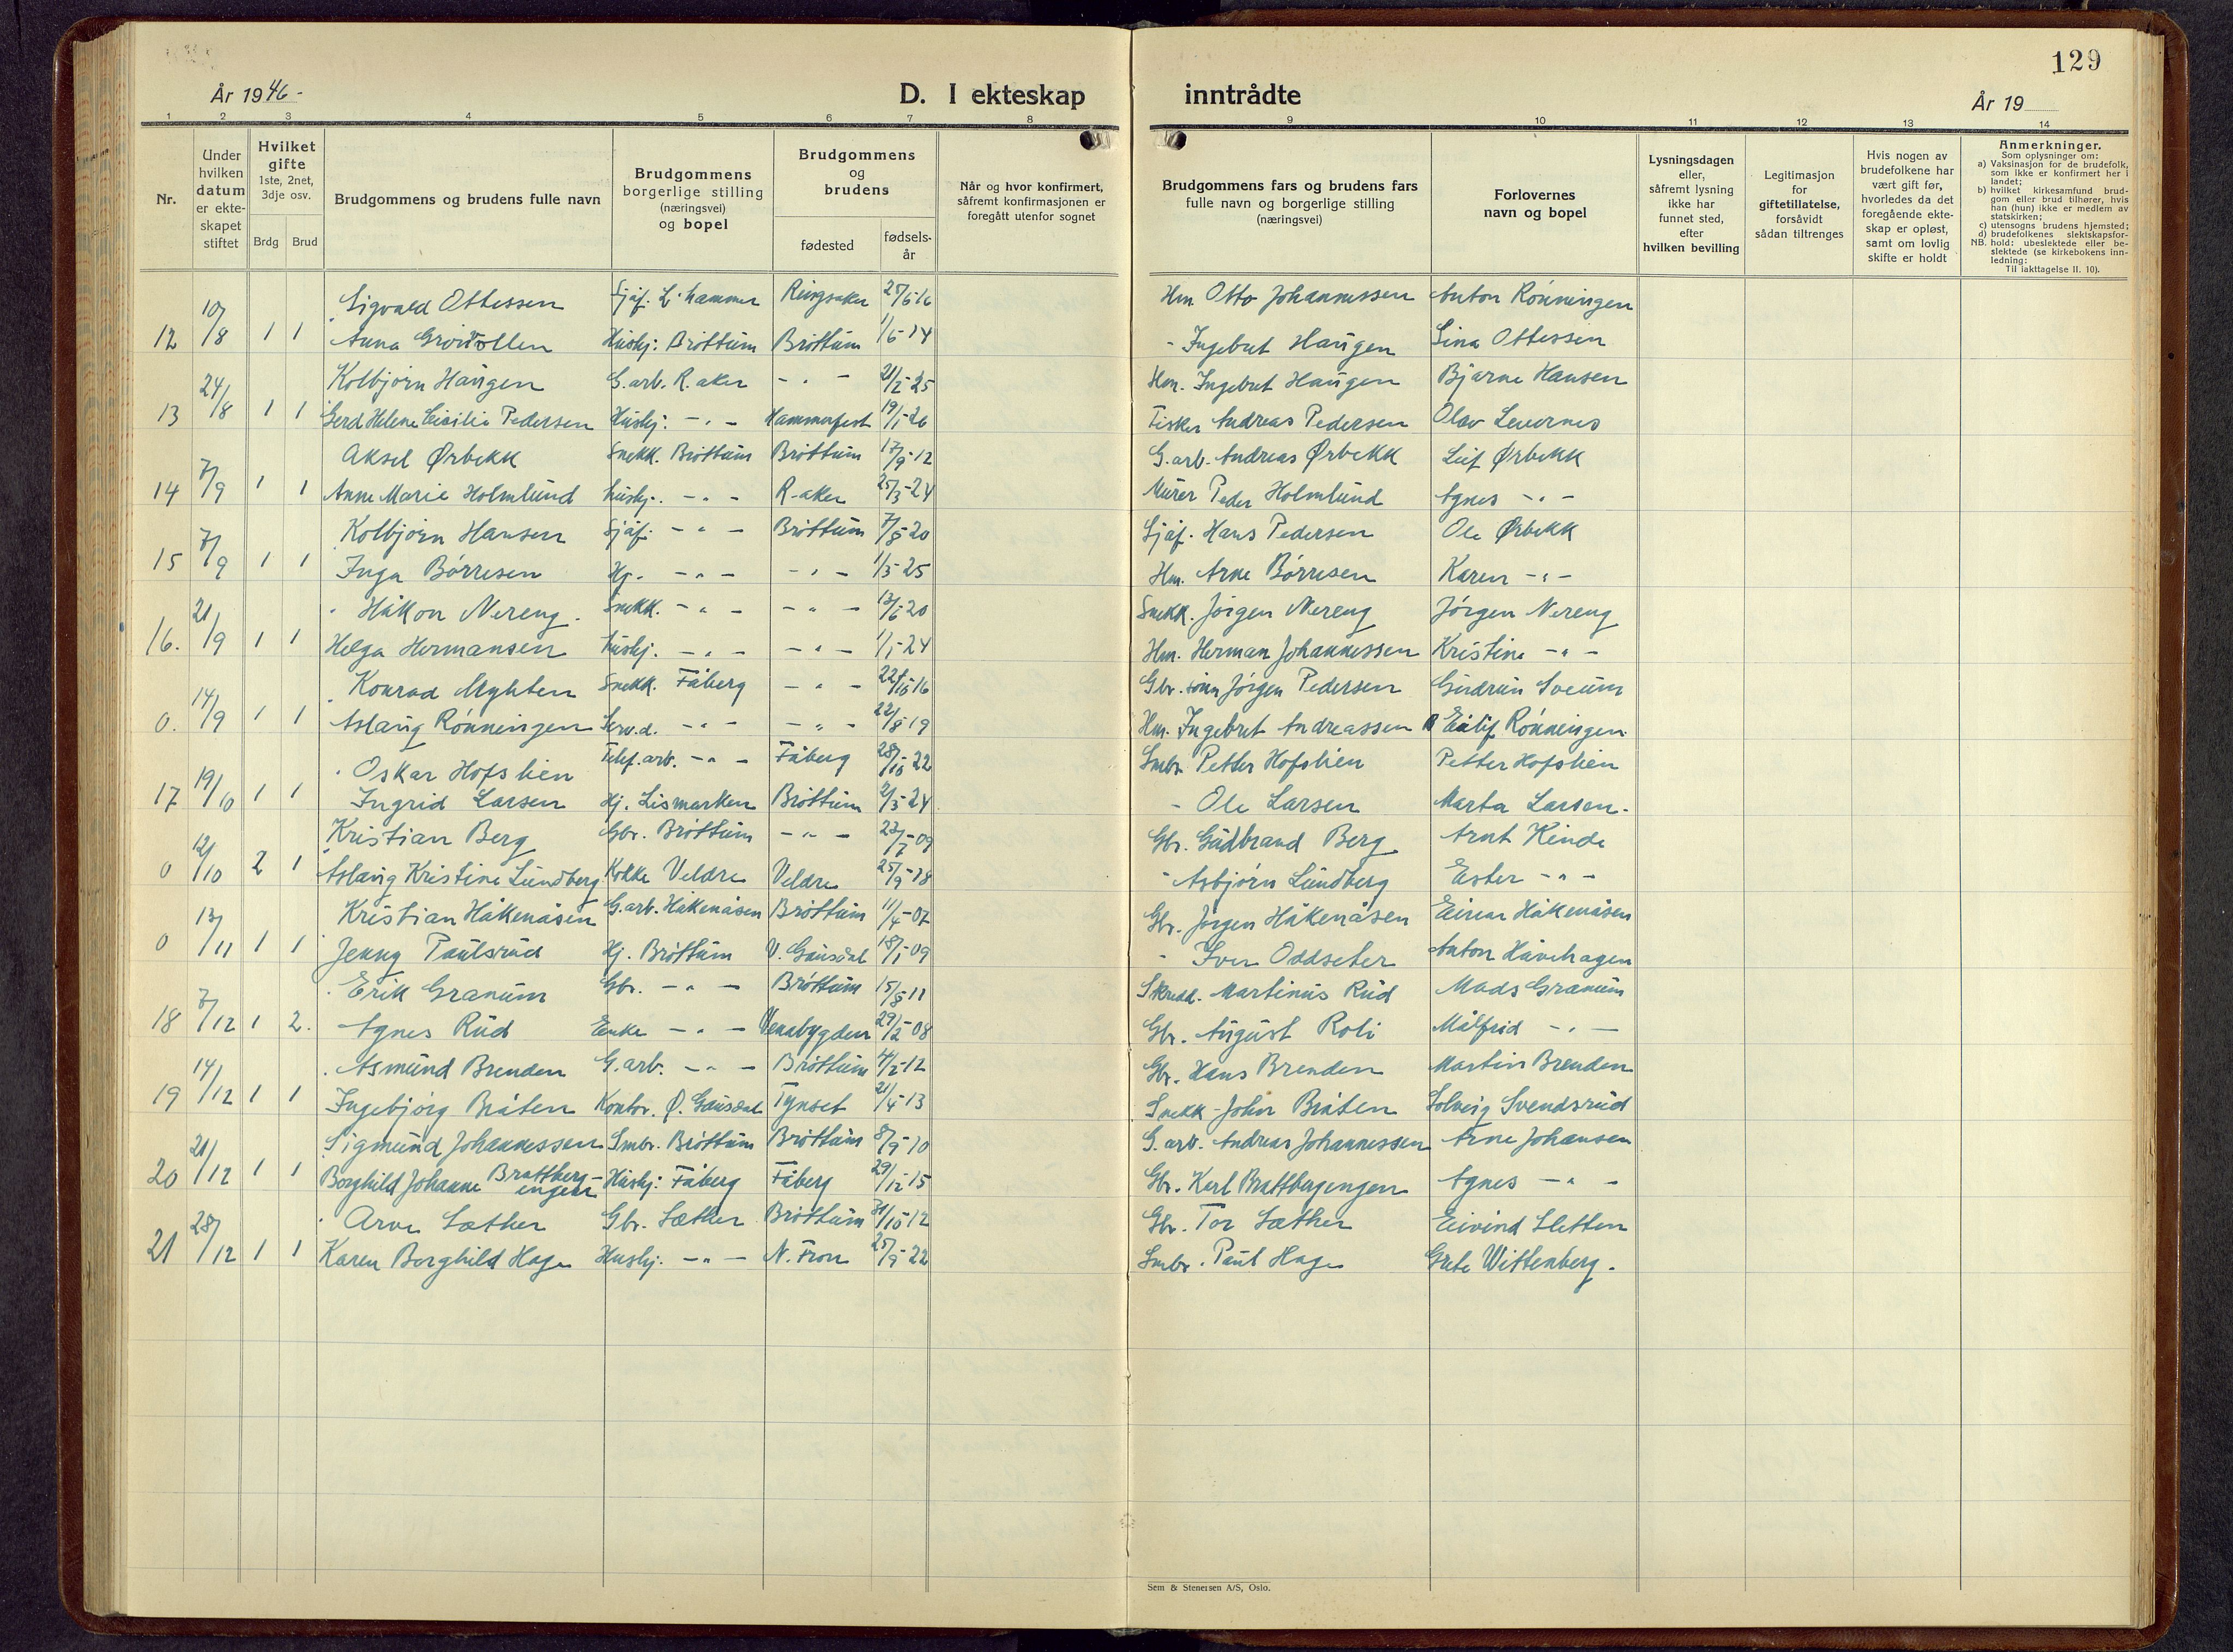 129
År 1946-
D. I ekteskap inntrådte
År 19
1 2 3 4 5 6 7 8 9 10 11 12 13 14
Nr.
Under hvilken datum er ekteskapet stiftet
Hvilket gifte 1ste, 2net, 3dje osv.
Brdg Brud
Brudgommens og brudens fulle navn
Brudgommens borgerlige stilling (næringsvei) og bopel
Brudgommens og brudens
fødested
fødsels-år
Når og hvor konfirmert, såfremt konfirmasjonen er foregått utenfor sognet
Brudgommens fars og brudens fars fulle navn og borgerlige stilling (næringsvei)
Forlovernes navn og bopel
Lysningsdagen eller, såfremt lysning ikke har funnet sted, efter hvilken bevilling
Legitimasjon for giftetillatelse, forsåvidt sådan tiltrenges
Hvis nogen av brudefolkene har vært gift før, hvorledes da det foregående ekteskap er opløst, samt om lovlig skifte er holdt
Anmerkninger.
Som oplysninger om:
a) Vaksinasjon for de brudefolk, som ikke er konfirmert her i landet;
b) hvilket kirkesamfund brudgom eller brud tilhører, hvis han (hun) ikke er medlem av statskirken;
c) utensogns brudens hjemsted;
d) brudefolkenes slektskapsforhold: ubeslektede eller beslektede (se kirkebokens innledning:
NB.
Til iakttagelse II. 10).
Sigvald Ottessen Sjåf. L.hammer Ringsaker 16 Hm. Otto Johannessen Anton Rönningen
12 10/8 1 1 Anna Hushj. Bröttum Bröttum 14 - Ingebret Haugen Lina Ottessen
Kolbjörn Haugen G.arb. R.aker - " - 25 Hm. Ingebret Haugen Bjarne Hansen
13 24/8 1 1 Gerd Helene Cicilie Pedersen Hushj. - " - Hammerfest 19/1-26 Fisker Andreas Pedersen Olav
Aksel Ørbekk Snekk. Bröttum Bröttum 17/9-12 G.arb. Andreas Ørbekk Leif Ørbekk
14 7/9 1 1 Anne Marie Holmlund Hushj. - " - R-aker 25/3-24 Murer Peder Holmlund Agnes - " -
Kolbjörn Hansen Sjåf. - " - Bröttum 7/8-20 Sjåf. Hans Pedersen Ole Ørbekk
15 7/9 1 1 Inga Börresen Hj. - " - - " - 25 Hm. Arne Börresen Karen - " -
Håkon Nereng Snekk. - " - - " - 20 Snekk. Jörgen Nereng Jörgen Nereng
16. 21/9 1 1 Helga Hermansen Hushj. - " - - " - 1/1-24 Hm. Herman Johannessen Kristine - " -
Konrad Myhten Snekk. Fåberg - " - 22/10-16 Gbr. sönn Jörgen Pedersen Gudrun Sveum
0. 14/9 1 1 Aslaug Rönningen Serv.d. - " - - " - 22/8-19 Hm. Ingebret Andreassen Eilif Rönningen
Oskar Hofslien Telef.arb. - " - Fåberg 28/10-22 Smbr. Petter Hofslien Petter Hofslien
17 19/10 1 1 Ingrid Larsen Hj. Lismarken Bröttum 2/3-24 - Ole Larsen Marta Larsen
Kristian Berg Gbr. Bröttum - " - 23/7-09 Gbr. Gudbrand Berg Arnt Kinde
0 12/10 2 1 Aslaug Kristine Lundberg Kokke Veldre Veldre 25/9-18 - Asbjörn Lundberg Ester - " -
Kristian Håkenåsen G.arb. Håkenåsen Bröttum 11/4-07 Gbr. Jörgen Håkenåsen Einar Håkenåsen
0 13/11 1 1 Jenny Paulsrud Hj. Bröttum V. Gausdal 18/1-09 - Iver Oddseter Anton Håvehagen
Erik Granum Gbr. - " - Bröttum 15/8-11 Skredd. Martinus Rud Mads Granum
18 7/12 1 2. Agnes Rud Enke - " - Venabygden 29/2-08 Gbr. August Roli Målfrid - " -
Asmund Brenden G.arb. - " - Bröttum 4/2-12 Gbr. Hans Brenden Martin Brenden
19 14/12 1 1 Ingebjörg Bråten Kontor. Ø. Gausdal Tynset 21/4-13 Snekk. John Bråten Solveig Svendsrud
Sigmund Johannessen Smbr. Bröttum Bröttum 8/9-10 G.arb. Andreas Johannessen Arne Johansen
20 21/12 1 1 Borghild Johanne Brattberg-engen Hushj: Fåberg Fåberg 29/12-15 Gbr. Karl Brattbergengen Agnes - " -
Arve Sæther Gbr. Sæther Bröttum 31/10-12 Gbr. Tor Sæther Eivind Sletten
21 28/12 1 1 Karen Borghild Hage Hushj. - " - N. Fron 25/9-22 Smbr. Paul Hage Grete Wittenberg.
Sem & Stenersen A/S, Oslo.